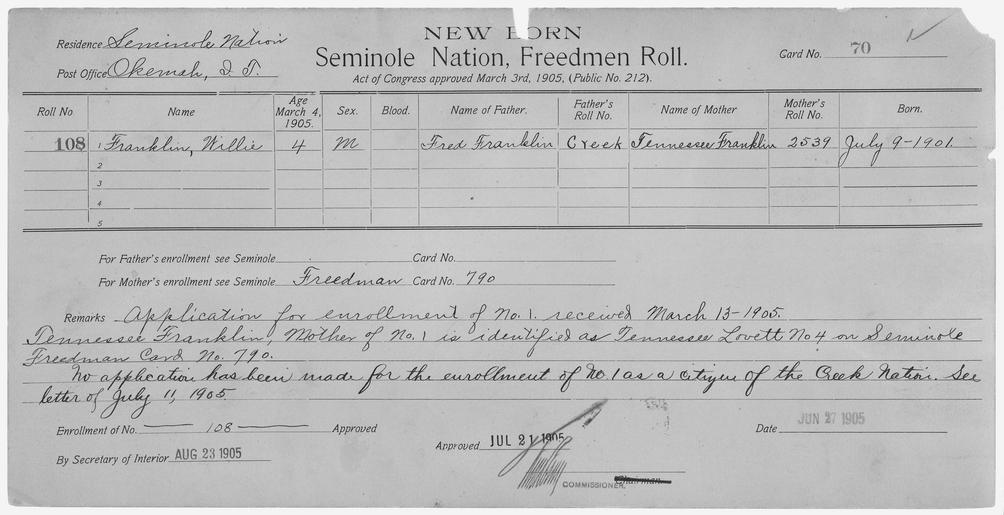 NEW BORN
Residence Seminole Nation
Seminole Nation, Freedmen Roll.
Card No. 70
Post Office Okemah, I. T.
Act of Congress approved March 3rd, 1905, (Public No. 212).
Roll No Name Age March 4, 1905. Sex. Blood. Name of Father. Father's Roll No. Name of Mother Mother's Roll No. Born.
108 1 Franklin, Willie 4 M Fred Franklin Creek Tennessee Franklin 2539 July 9-1901.
2
3
4
5
For Father's enrollment see Seminole Card No.
For Mother's enrollment see Seminole Freedman Card No. 790
Remarks Application for enrollment of No. 1. received March 13-1905.
Tennessee Franklin, Mother of No. 1 is identified as Tennessee Lovett No 4 on Seminole
Freedman Card No. 790.
No application has been made for the enrollment of No. 1 as a citizen of the Creek Nation. See
letter of July 11, 1905
Enrollment of No. 108 Approved
Approved JUL 21 1905
Date JUN 27 1905
By Secretary of Interior AUG 23 1905
COMMISSIONER. Chairman.